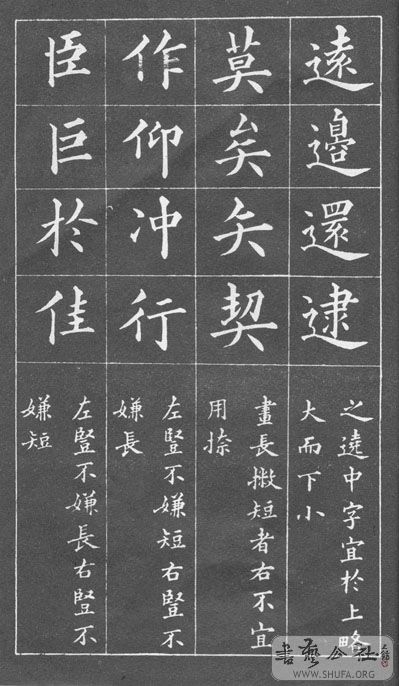 遠邊還逮
之遶中字宜於上略
大而下小
莫矣矢契
畫長撇短者右不宜
用捺
作仰冲行
左豎不嫌短右豎不
嫌長
臣巨於佳
左豎不嫌長右豎不
嫌短
書藝公社
WWW.SHUFA.ORG